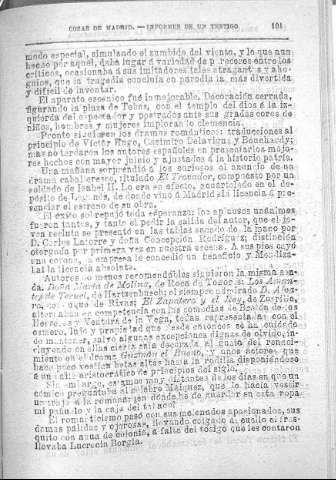 COSAS DE MADRID.—INFORMES DE UN TESTIGO 101
modo especial, simulando el zumbido del viento, y lo que aun
hecho por aquél, daba lugar á variedad de pareceres entre los
críticos, ocasionaba á sus imitadores tales
que la tragedia concluía en parodia la más divertida
y difícil de inventar.
El aparato escénico fué inmejorable. Decoración cerrada,
figurando la plaza de Tebas, con el templo del dios á la iz-
quierda del espectador y postrados ante sus gradas coros de
niños, hombres y mujeres implorar la clemencia.
Pronto siguieron los dramas románticos: traducciones al
principio de Víctor Hugo, Casimiro Delavigne y Bouchardy;
mas no tardaron los autores españoles en presentarlos mejo-
res hechos con mayor juicio y ajustados á la historia patria.
Una mañana sorprendió á los curiosos el anuncio de un
drama caballeresco, titulado El Trovador, compuesto por un
soldado de Isabel II. Lo era en efecto, acuartelado en el de-
pósito de Leganés, de donde vino á Madrid sin licencia á pre-
senciar el estreno de su obra.
El éxito sobrepujó toda esperanza: los aplausos unánimes
fueron tantos, y tanto el pedir la salida del autor, que el jo-
ven recluta se presentó en las tablas sacado de la mano por
D. Carlos Latorre y doña Concepción Rodríguez; distinción
otorgada por primera vez en nuestra escena. A sus pies cayó
una corona, la empresa le concedió un beneficio y Mendizá-
bal la licencia absoluta.
Autores no menos recomendables siguieron la misma sen-
da. Doña María de Molina, de Roca de Togores; Los Aman-
tes de Teruel, de Hartzenbusch; el siempre admirado D. Alva-
ro, del duque de Rivas; El Zapatero y el Rey, de Zorrilla,
alternaban en competencia con las comedias de Bretón de los
Herreros y Ventura de la Vega, todas representadas con el
esmero, lujo y propiedad que desde entonces se ha cuidado
de mantener, salvo algunas excepciones dignas de olvido, in-
cluyendo en ellas cierta sala decorada al gusto del renaci-
miento en el drama Guzmán el Bueno, y unos actores que
hace poco vestían botas altas hasta la rodilla disponiéndose
á un baile aristocrático de principios del siglo.
Sin embargo, estamos muy distantes de los días en que un
cómico preguntaba al célebre Máiquez, que le hacía vestir
un traje á la romana: ¿en dónde he de guardar en esta ropa
mi pañuelo y la caja del tabaco?
El romanticismo pasó con sus melenados apasionados, sus
damas pálidas y ojerosas, llevando colgado al cuello el fras-
quito con agua de colonia, á falta del tósigo que les contaron
llevaba Lucrecia Borgia.